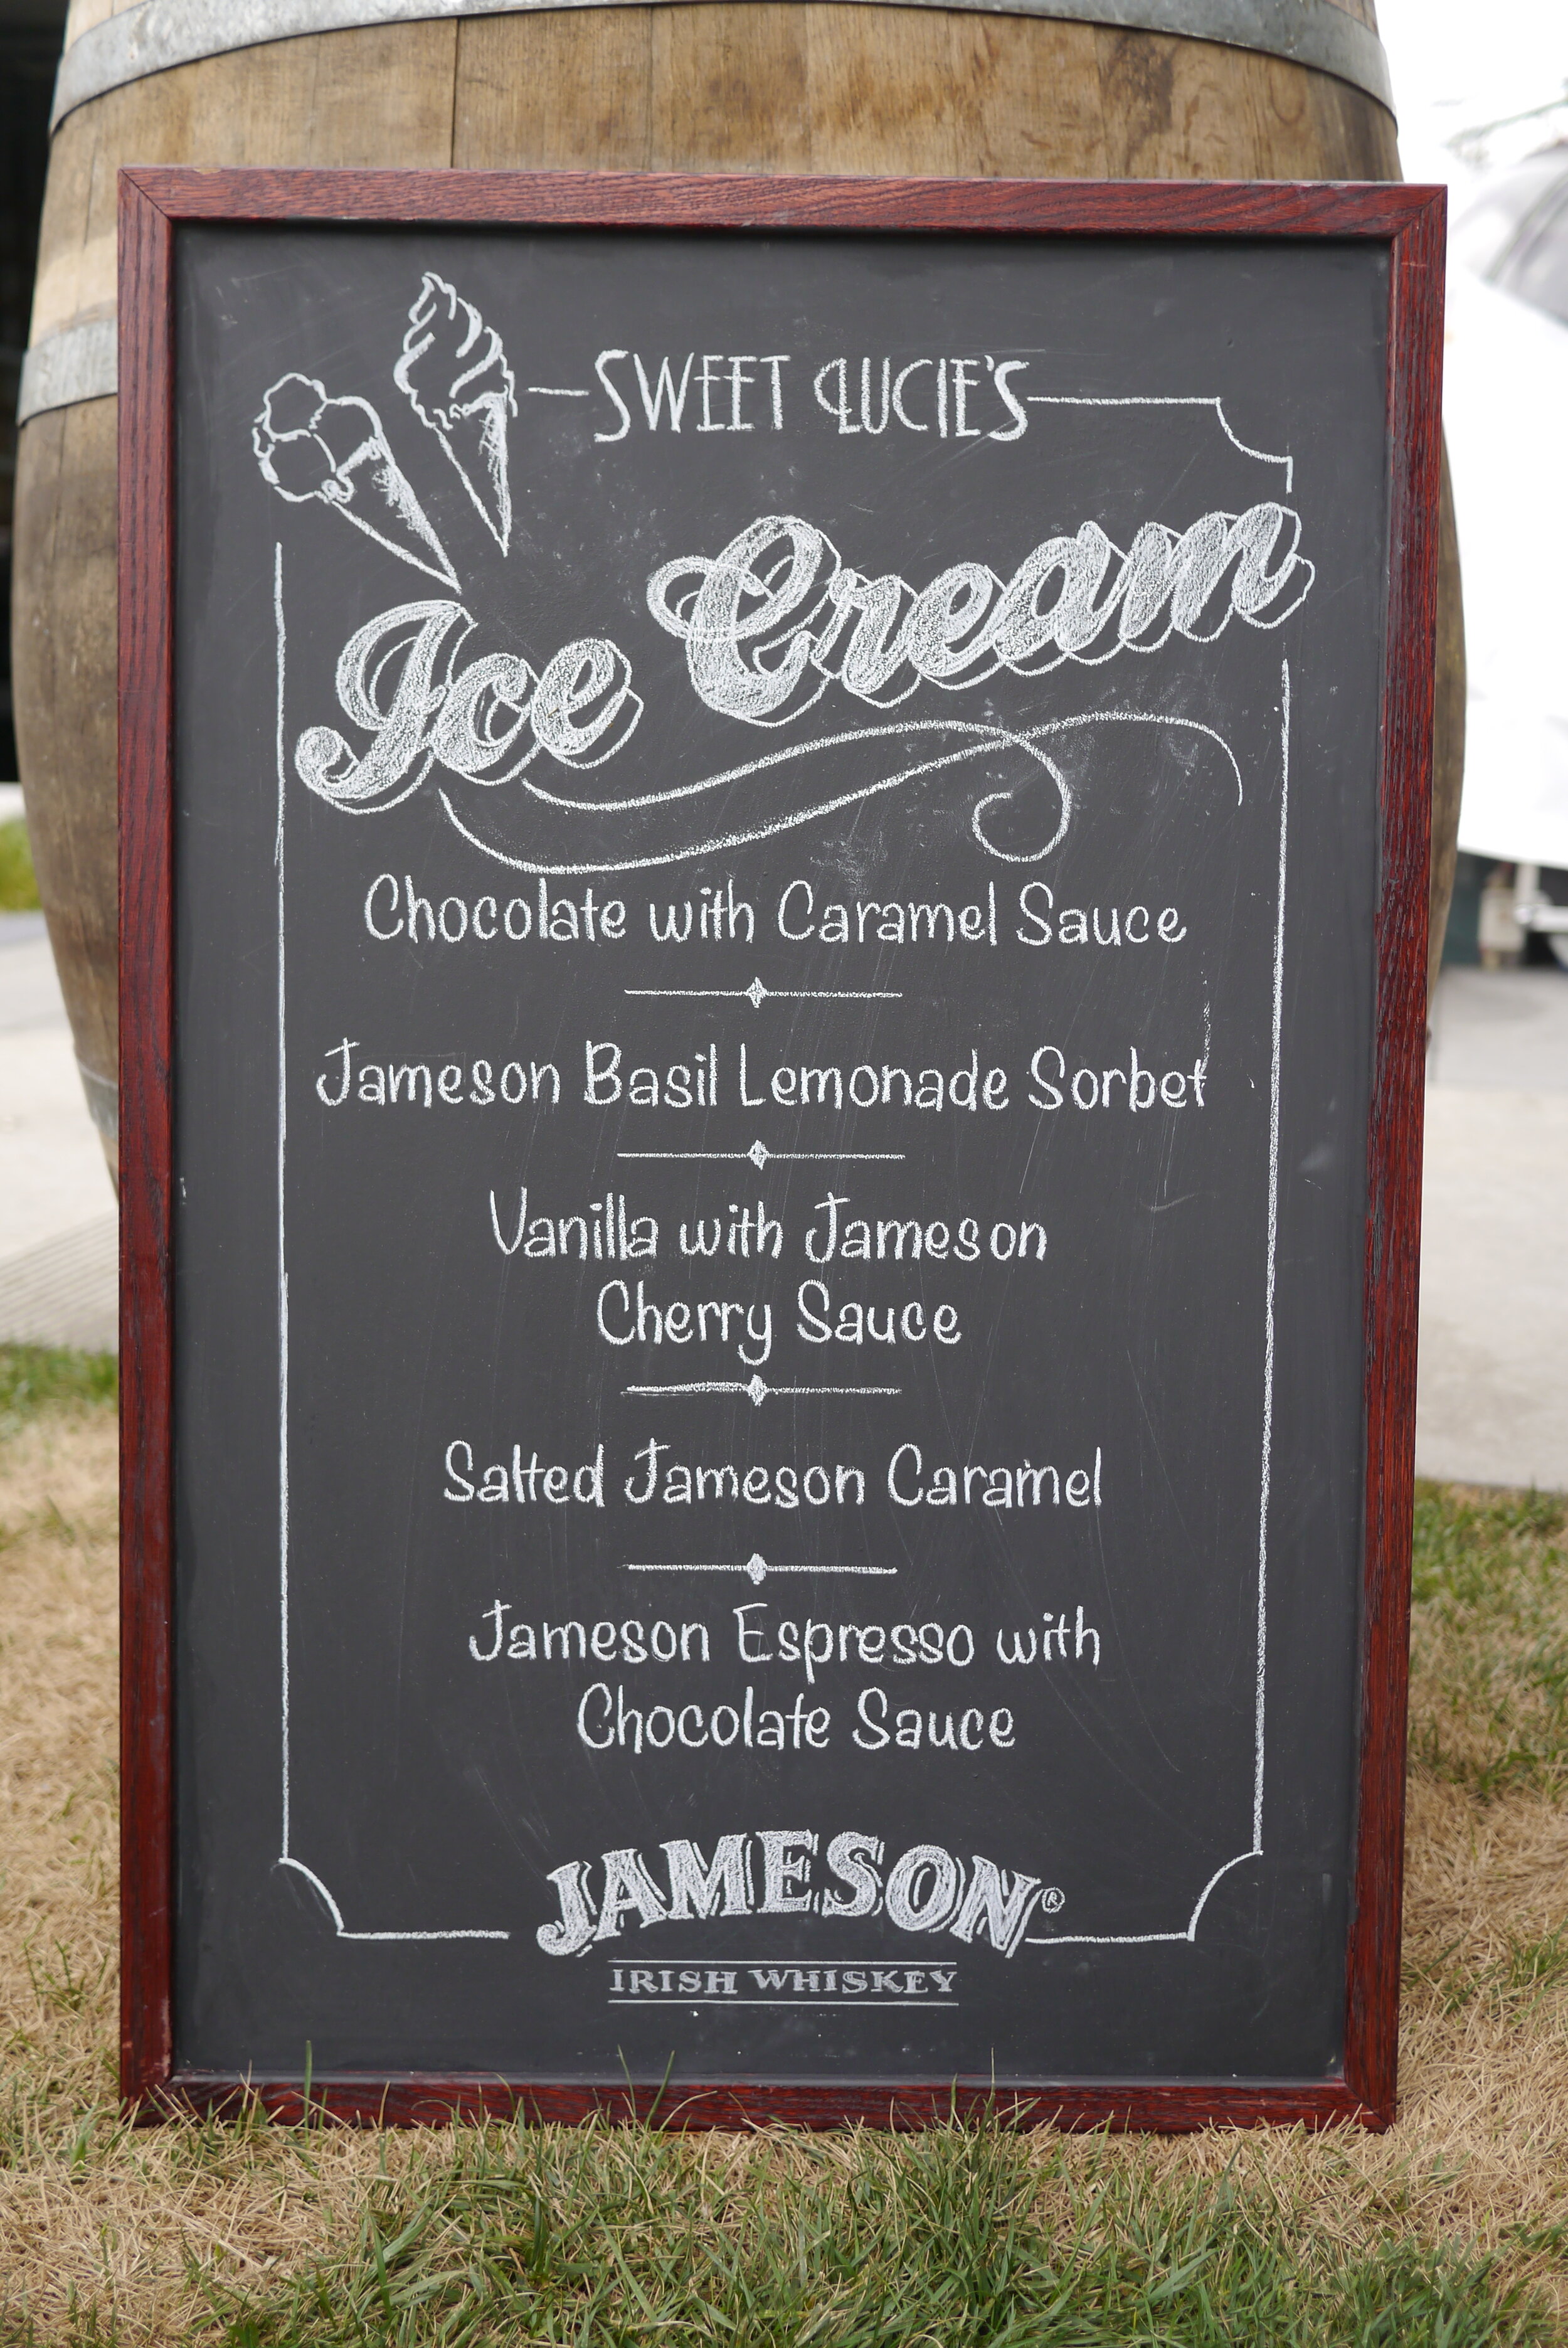 SWEET LUCIE'S
Ice Cream
Chocolate with Caramel Sauce
Jameson Basil Lemonade Sorbet
Vanilla with Jameson
Cherry Sauce
Salted Jameson Caramel
Jameson Espresso with
Chocolate Sauce
JAMESON®
IRISH WHISKEY